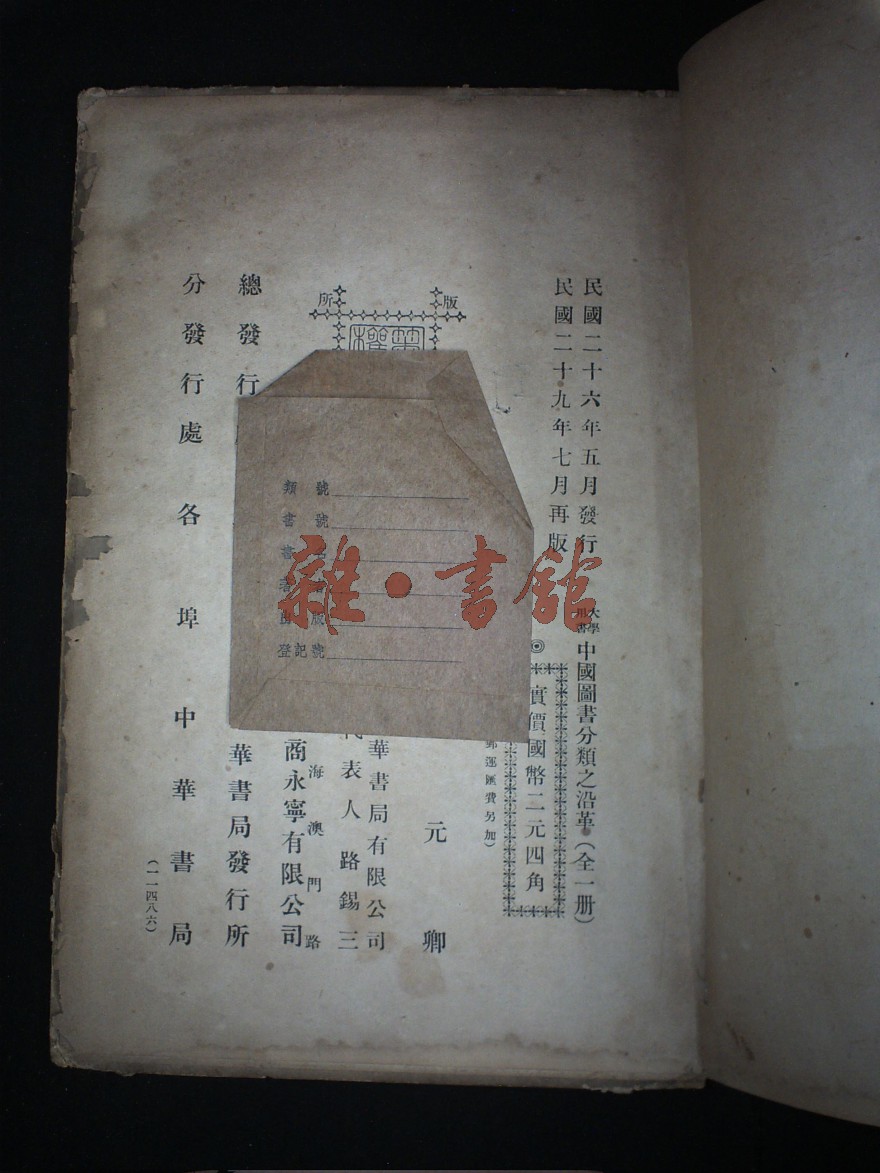 民國二十六年五月發行
民國二十九年七月再版
大學用書
中國圖書分類之沿革（全一册）
◎
實價國幣二元四角
（郵運匯費另加）
版
所
權
元卿
華書局有限公司
代表人路錫三
海澳門路
商永寧有限公司
總發行
華書局發行所
分發行處各埠中華書局
（一一四八六）
類號
書號
書
版
登記號
雜·書館